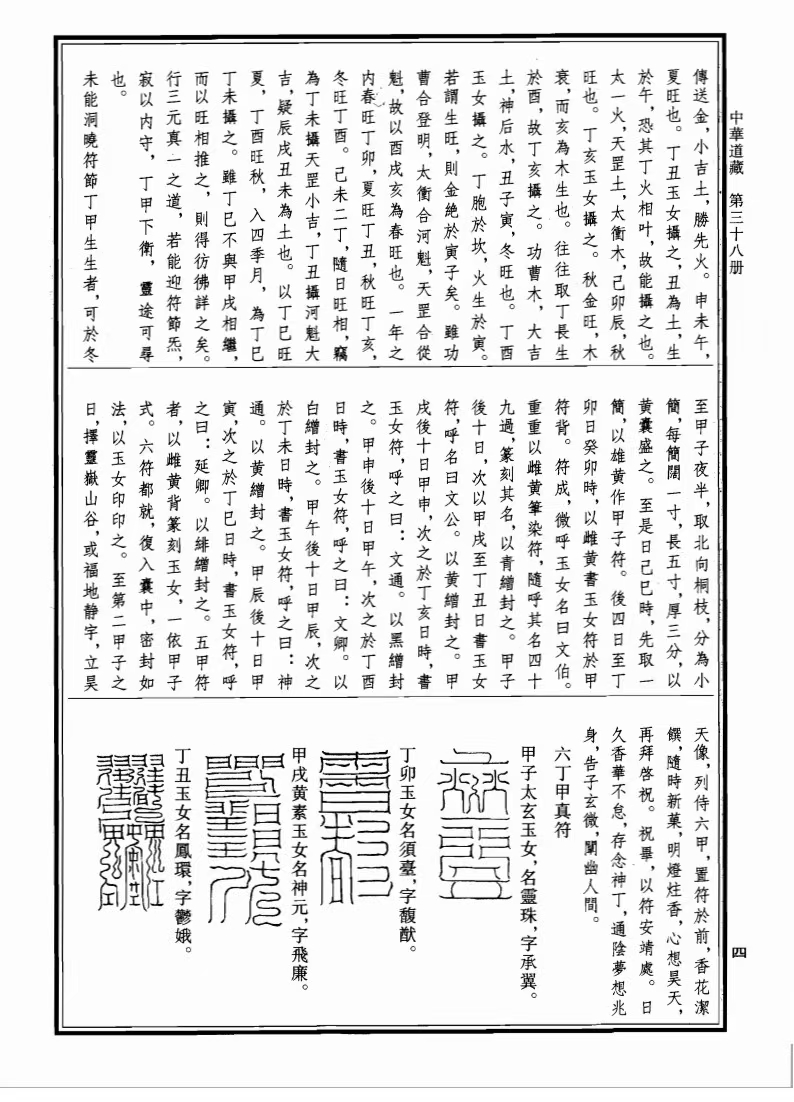 中華道藏　第三十八册
傳送金，小吉土，勝先火。申未午，
夏旺也。丁丑玉女攝之，丑為土，生
於午，恐其丁火相叶，故能攝之也。
太一火，天罡土，太衝木，己卯辰，秋
旺也。丁亥玉女攝之。秋金旺，木
衰，而亥為木生也。往往取丁長生
於酉，故丁亥攝之。功曹木，大吉
土，神后水，丑子寅，冬旺也。丁酉
玉女攝之。丁胞於坎，火生於寅。
若謂生旺，則金絶於寅子矣。雖功
曹合登明，太衝合河魁，天罡合從
魁，故以酉戌亥為春旺也。一年之
内春旺丁卯，夏旺丁丑，秋旺丁亥，
冬旺丁酉。己未二丁，隨日旺相，竊
為丁未攝天罡小吉，丁丑攝河魁大
吉，疑辰戌丑未為土也。以丁巳旺
夏，丁酉旺秋，入四季月，為丁巳
丁未攝之。雖丁巳不與甲戌相繼，
而以旺相推之，則得彷彿詳之矣。
行三元真一之道，若能迎符節炁，
寂以内守，丁甲下衛，靈途可尋
也。
未能洞曉符節丁甲生生者，可於冬
至甲子夜半，取北向桐枝，分為小
簡，每簡闊一寸，長五寸，厚三分，以
黄囊盛之。至是日己巳時，先取一
簡，以雄黄作甲子符。後四日至丁
卯日癸卯時，以雌黄書玉女符於甲
符背。符成，微呼玉女名曰文伯。
重重以雌黄筆染符，隨呼其名四十
九過，篆刻其名，以青繒封之。甲子
後十日，次以甲戌至丁丑日書玉女
符，呼名曰文公。以黄繒封之。甲
戌後十日甲申，次之於丁亥日時，書
玉女符，呼之曰：文通。以黑繒封
之。甲申後十日甲午，次之於丁酉
日時，書玉女符，呼之曰：文卿。以
白繒封之。甲午後十日甲辰，次之
於丁未日時，書玉女符，呼之曰：神
通。以黄繒封之。甲辰後十日甲
寅，次之於丁巳日時，書玉女符，呼
之曰：延卿。以緋繒封之。五甲符
者，以雌黄背篆刻玉女，一依甲子
式。六符都就，復入囊中，密封如
法，以玉女印印之。至第二甲子之
日，擇靈嶽山谷，或福地静宇，立昊
天像，列侍六甲，置符於前，香花潔
饌，隨時新菓，明燈炷香，心想昊天，
再拜啓祝。祝畢，以符安靖處。日
久香華不怠，存念神丁，通陰夢想兆
身，告子玄微，闡幽人間。
六丁甲真符
甲子太玄玉女，名靈珠，字承翼。
丁卯玉女名須臺，字馥猷。
甲戌黄素玉女名神元，字飛廉。
丁丑玉女名鳳環，字鬱娥。
四